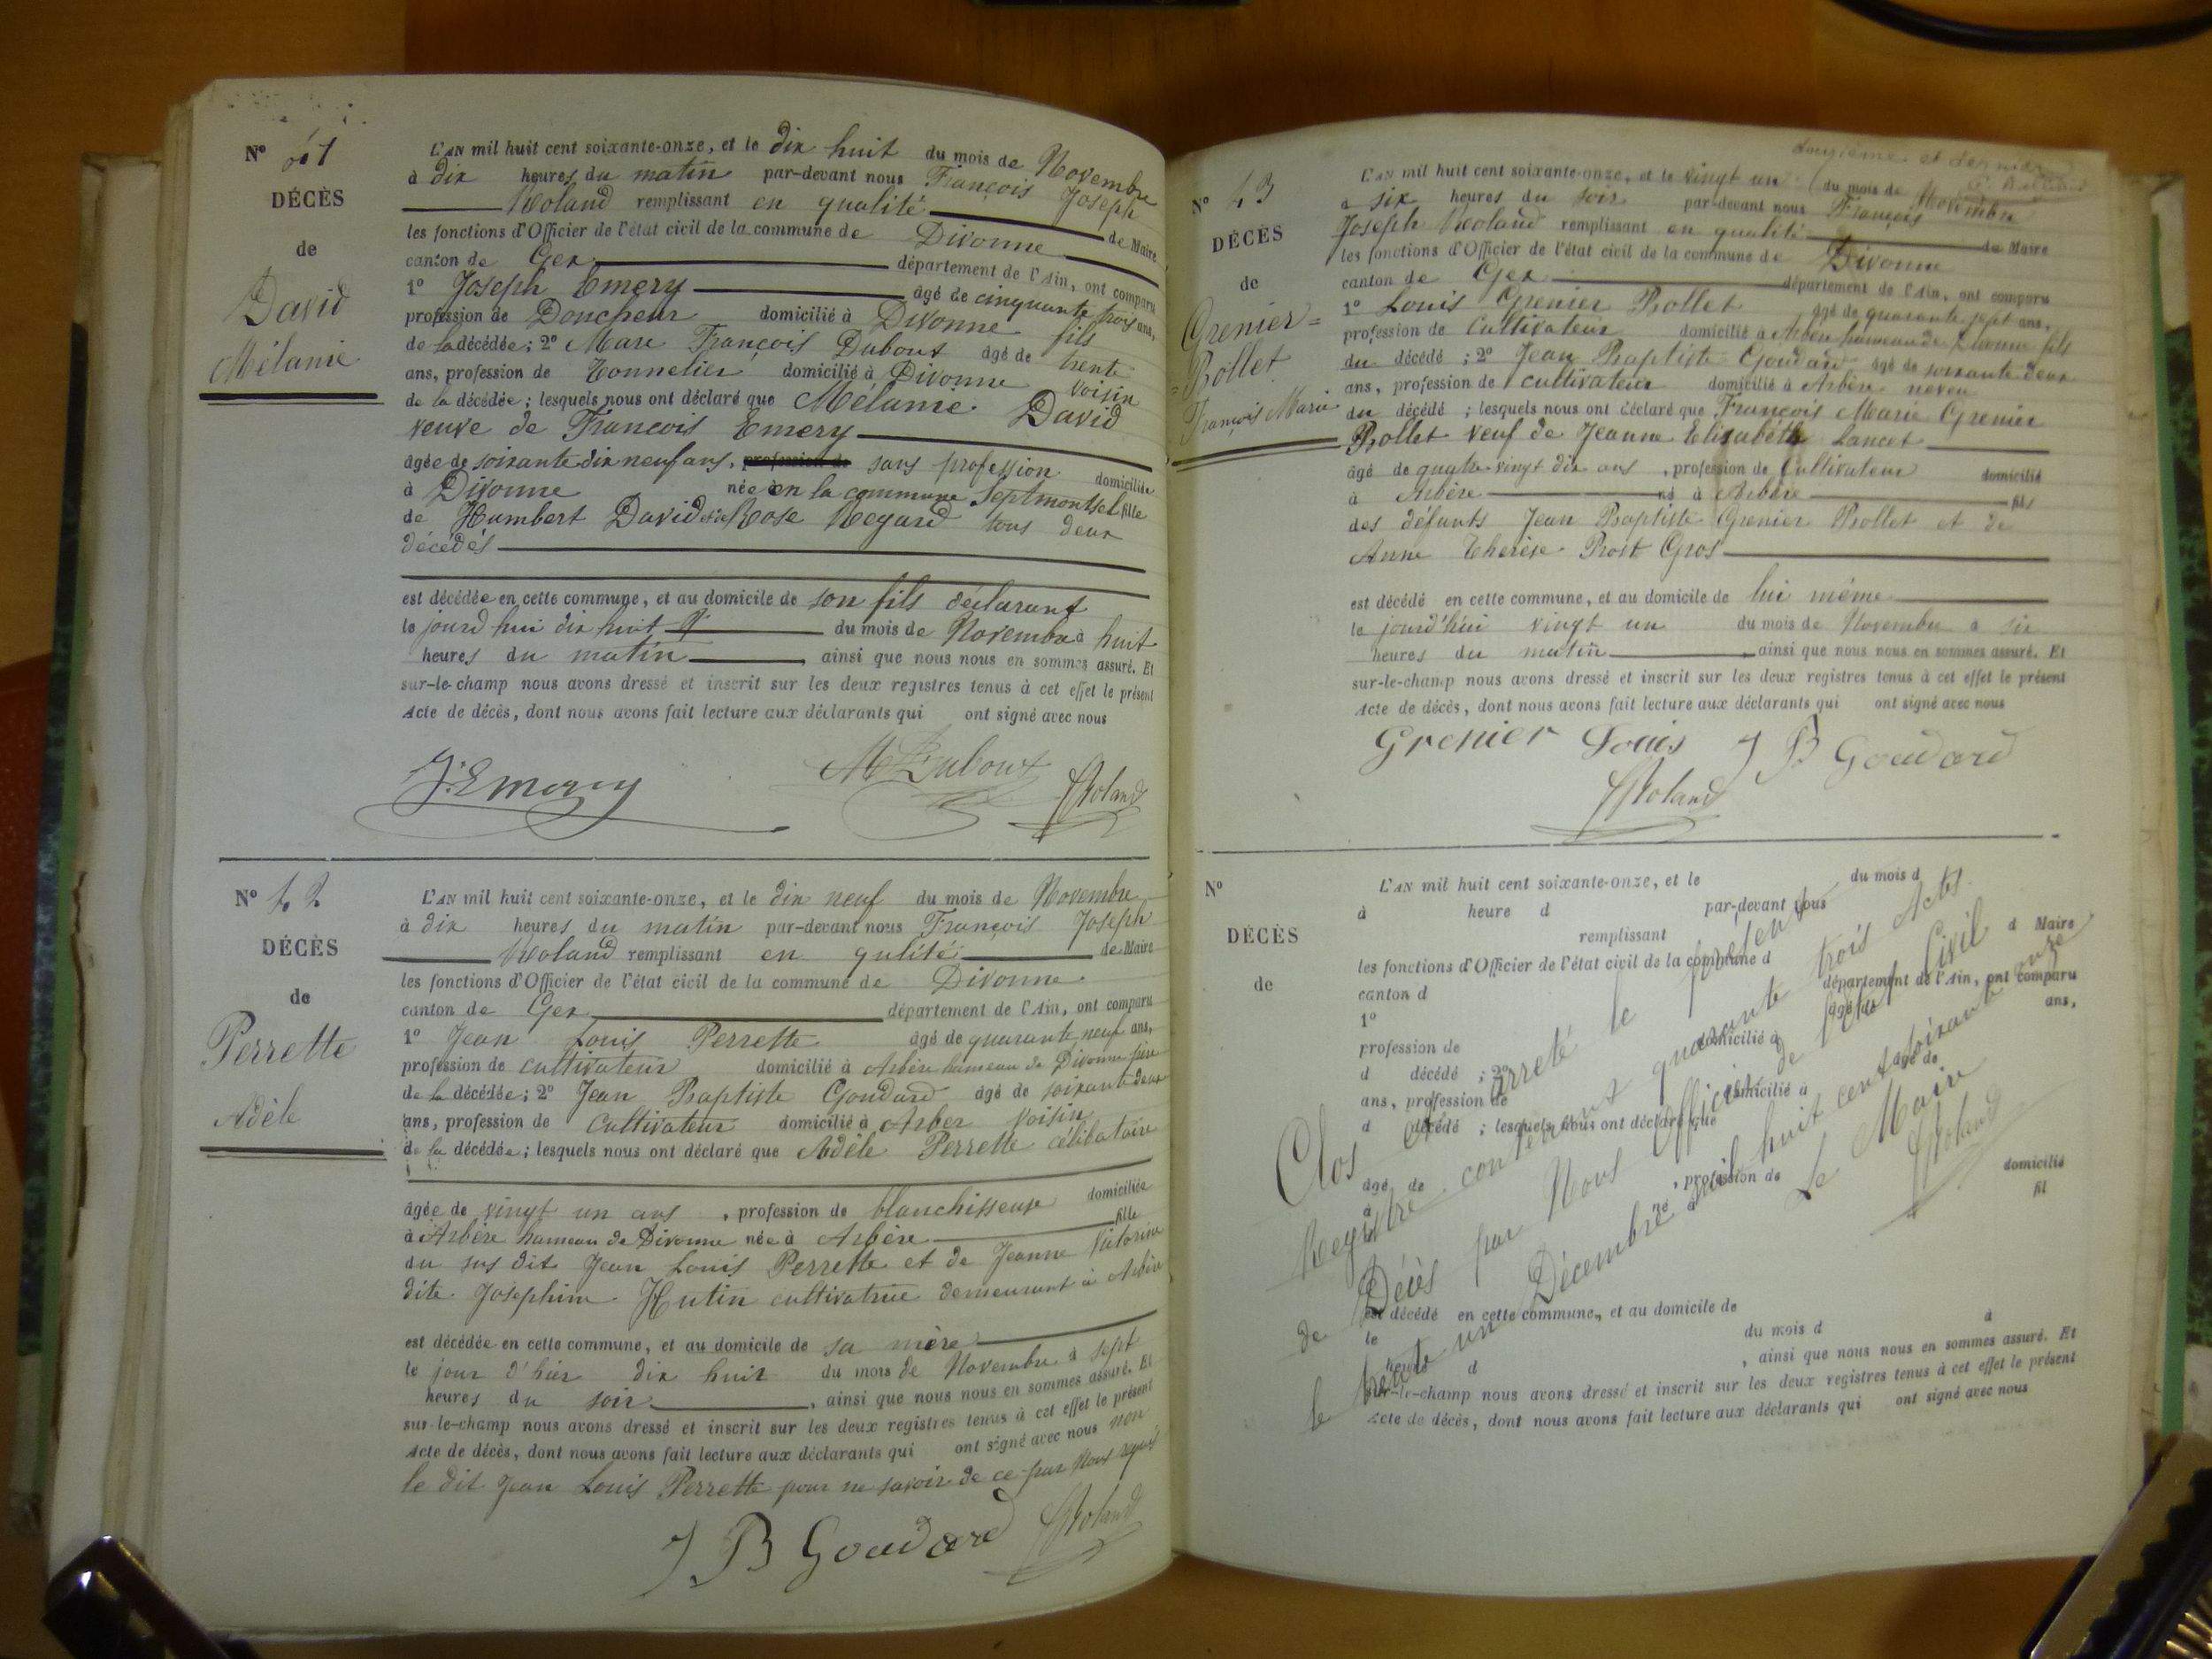 N° 41
DÉCÈS
de
David
Mélanie
L'AN mil huit cent soixante-onze, et le dix huit du mois de Novembre
à dix heures du matin par-devant nous François Joseph
Roland remplissant en qualité de Maire
les fonctions d'Officier de l'état civil de la commune de Divonne
canton de Gex département de l'Ain, ont comparu
1° Joseph Emery âgé de cinquante trois ans,
profession de Doucheur domicilié à Divonne fils
de la décédée; 2° Marc François Dubout âgé de trente
ans, profession de Tonnelier domicilié à Divonne voisin
de la décédée; lesquels nous ont déclaré que Mélanie David
veuve de François Emery
âgée de soixante dix neuf ans, profession de sans profession domiciliée
à Divonne née en la commune Septmontcel fille
de Humbert David et de Rose Regard tous deux
décédés
est décédée en cette commune, et au domicile de son fils déclarant
le jourd'hui dix huit du mois de Novembre à huit
heures du matin, ainsi que nous nous en sommes assuré. Et
sur-le-champ nous avons dressé et inscrit sur les deux registres tenus à cet effet le présent
Acte de décès, dont nous avons fait lecture aux déclarants qui ont signé avec nous
J. Emery M Dubout Roland
N° 42
DÉCÈS
de
Perrette
Adèle
L'AN mil huit cent soixante-onze, et le dix neuf du mois de Novembre
à dix heures du matin par-devant nous François Joseph
Roland remplissant en qulité de Maire
les fonctions d'Officier de l'état civil de la commune de Divonne
canton de Gex département de l'Ain, ont comparu
1° Jean Louis Perrette âgé de quarante neuf ans,
profession de cultivateur domicilié à Arbère hameau de Divonne père
de la décédée; 2° Jean Baptiste Goudard âgé de soixante deux
ans, profession de cultivateur domicilié à Arber voisin
de la décédée; lesquels nous ont déclaré que Adèle Perrette célibataire
âgée de vingt un ans, profession de blanchisseuse domiciliée
à Arbère hameau de Divonne née à Arbère fille
du sus dit Jean Louis Perrette et de Jeanne Victorine
dite Joséphine Hutin cultivatrice demeurant à Arbère
est décédée en cette commune, et au domicile de sa mère
le jour d'hier dix huit du mois de Novembre à sept
heures du soir, ainsi que nous nous en sommes assuré. Et
sur-le-champ nous avons dressé et inscrit sur les deux registres tenus à cet effet le présent
Acte de décès, dont nous avons fait lecture aux déclarants qui ont signé avec nous non
le dit Jean Louis Perrette pour ne savoir de ce par Nous requis
J B Goudard Roland
douzième et dernier
N° 43
DÉCÈS
de
Grenier=
=Bollet
François Marie
L'AN mil huit cent soixante-onze, et le vingt un du mois de Novembre
à six heures du soir par-devant nous François
Joseph Roland remplissant en qualité de Maire
les fonctions d'Officier de l'état civil de la commune de Divonne
canton de Gex département de l'Ain, ont comparu
1° Louis Grenier Bollet âgé de quarante sept ans,
profession de Cultivateur domicilié à Arbère hameau de Divonne fils
du décédé; 2° Jean Baptiste Goudard âgé de soixante deux
ans, profession de cultivateur domicilié à Arbère neveu
du décédé; lesquels nous ont déclaré que François Marie Grenier
Bollet veuf de Jeanne Elisabeth Lancet
âgé de quatre vingt dix ans, profession de Cultivateur domicilié
à Arbère né à Arbère fils
des défunts Jean Baptiste Grenier Bollet et de
Anne Thérèse Prost Gros
est décédé en cette commune, et au domicile de lui même
le jourd'hui vingt un du mois de Novembre à six
heures du matin, ainsi que nous nous en sommes assuré. Et
sur-le-champ nous avons dressé et inscrit sur les deux registres tenus à cet effet le présent
Acte de décès, dont nous avons fait lecture aux déclarants qui ont signé avec nous
Grenier Louis J B Goudard
Roland
N°
DÉCÈS
de
L'AN mil huit cent soixante-onze, et le du mois d
à heure d par-devant nous
remplissant d Maire
les fonctions d'Officier de l'état civil de la commune d
canton d département de l'Ain, ont comparu
1° âgé de ans,
profession de domicilié à
d décédé; 2° âgé de
ans, profession de domicilié à
d décédé; lesquels nous ont déclaré que
âgé de, profession de domicilié
à né à fil
est décédé en cette commune, et au domicile de
le du mois d à
heure d, ainsi que nous nous en sommes assuré. Et
sur-le-champ nous avons dressé et inscrit sur les deux registres tenus à cet effet le présent
Acte de décès, dont nous avons fait lecture aux déclarants qui ont signé avec nous
Clos et arreté le présent
Registre contenant quarante trois Actes
de Décès par Nous Officier de l'état Civil
le trente un Décembre mil huit cent soixante onze
Le Maire
Roland